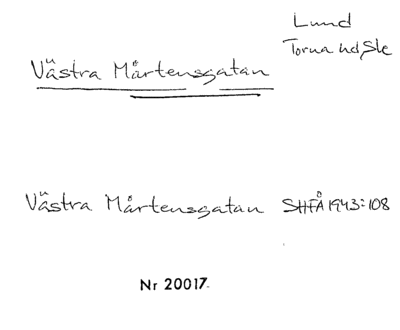 Lund
Torna hd, Sk
Västra Mårtensgatan
Västra Mårtensgatan SHFÅ 1943:108
Nr 20017